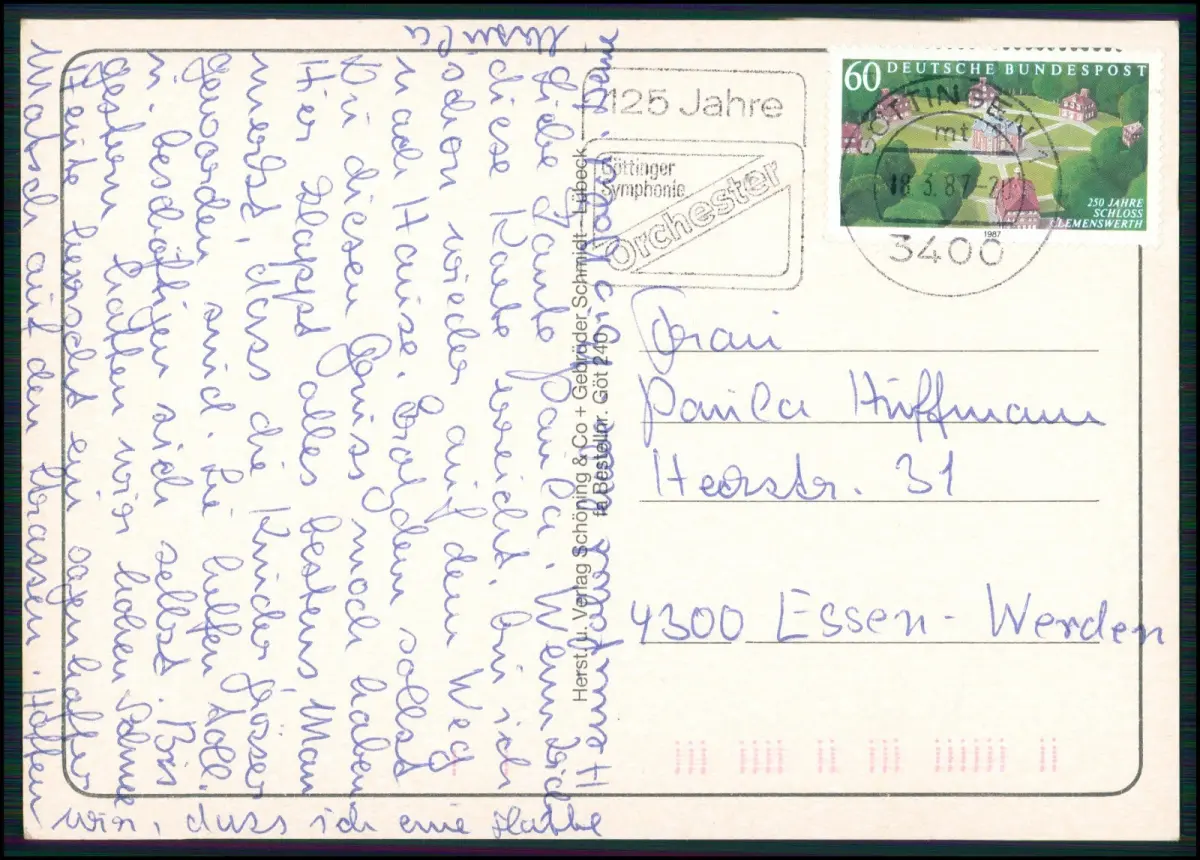 125 Jahre
Göttinger
Symphonie
Orchester
60 DEUTSCHE BUNDESPOST
250 JAHRE
SCHLOSS
CLEMENSWERTH
1987
GÖTTINGEN 1
mt
18.3.87-2
3400
Liebe Tante Paula! Wenn Dich
diese Karte erreicht, bin ich
schon wieder auf dem Weg
nach Hause. Trotzdem sollst
Du diesen Gruss noch haben
Hier klappt alles bestens. Man
merkt, dass die Kinder grösser
geworden sind. Sie helfen toll
u. beschäftigen sich selbst. Bis
gestern hatten wir hohen Schnee
Heute herrscht ein sagenhafter
Matsch auf den Strassen. Hoffen
wir, dass ich eine glatte
Heimfahrt habe. Deine
Ursula
Herst. u. Verlag Schöning & Co + Gebrüder Schmidt - Lübeck
Bestellnr. Göt 240
Frau
Paula Hüffmann
Heerstr. 31
4300 Essen-Werden